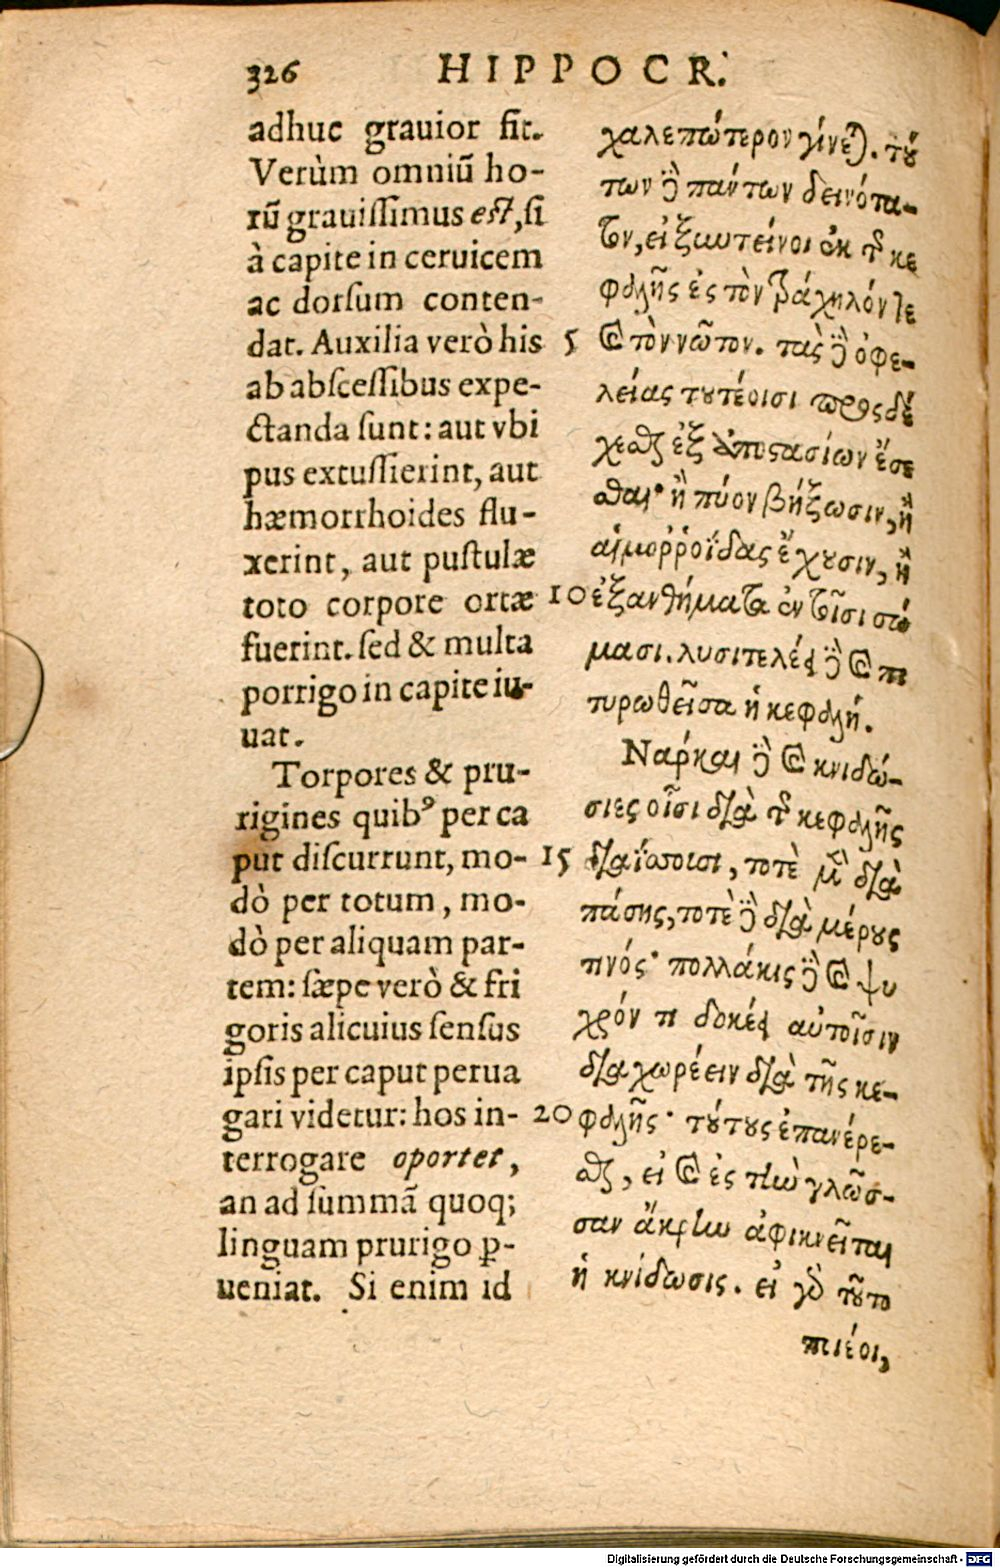 326 HIPPOCR.
adhuc grauior fit.
Verùm omniũ ho-
rũ grauissimus est, si
à capite in ceruicem
ac dorsum conten-
dat. Auxilia verò his
ab abscessibus expe-
ctanda sunt: aut vbi
pus extussierint, aut
hæmorrhoides flu-
xerint, aut pustulæ
toto corpore ortæ
fuerint. sed & multa
porrigo in capite iu-
uat.
Torpores & pru-
rigines quibꝰ per ca
put discurrunt, mo-
dò per totum, mo-
dò per aliquam par-
tem: sæpe verò & fri
goris alicuius sensus
ipsis per caput perua
gari videtur: hos in-
terrogare oportet,
an ad summã quoq;
linguam prurigo ꝑ-
ueniat. Si enim id
χαλεπώτερον γίνεται. τού
των δὲ πάντων δεινότα-
τον, εἰ ξυντείνοι ἐκ τῆς κε
φαλῆς ἐς τὸν τράχηλόν τε
5 καὶ τὸν νῶτον. τὰς δὲ ὀφε-
λείας τουτέοισι προσδέ
χεσθαι ἐξ ἀποστασίων ἔσε
σθαι· ἢ πύον βήξωσιν, ἢ
αἱμοῤῥοΐδας ἔχουσιν, ἢ
10 ἐξανθήματα ἐν τοῖσι στό
μασι. λυσιτελέει δὲ καὶ πι
τυρωθεῖσα ἡ κεφαλή.
Νάρκαι δὲ καὶ κνιδώ-
σιες οἷσι διὰ τῆς κεφαλῆς
15 διαΐσσοισι, τοτὲ μὲν διὰ
πάσης, τοτὲ δὲ διὰ μέρους
τινός· πολλάκις δὲ καὶ ψυ
χρόν τι δοκέει αὐτοῖσιν
διαχωρέειν διὰ τῆς κε-
20 φαλῆς· τούτους ἐπανέρε-
σθαι, εἰ καὶ ἐς τὴν γλῶσ-
σαν ἄκρην ἀφικνεῖται
ἡ κνίδωσις. εἰ γὰρ τοῦτο
ποιέοι,
Digitalisierung gefördert durch die Deutsche Forschungsgemeinschaft - DFG